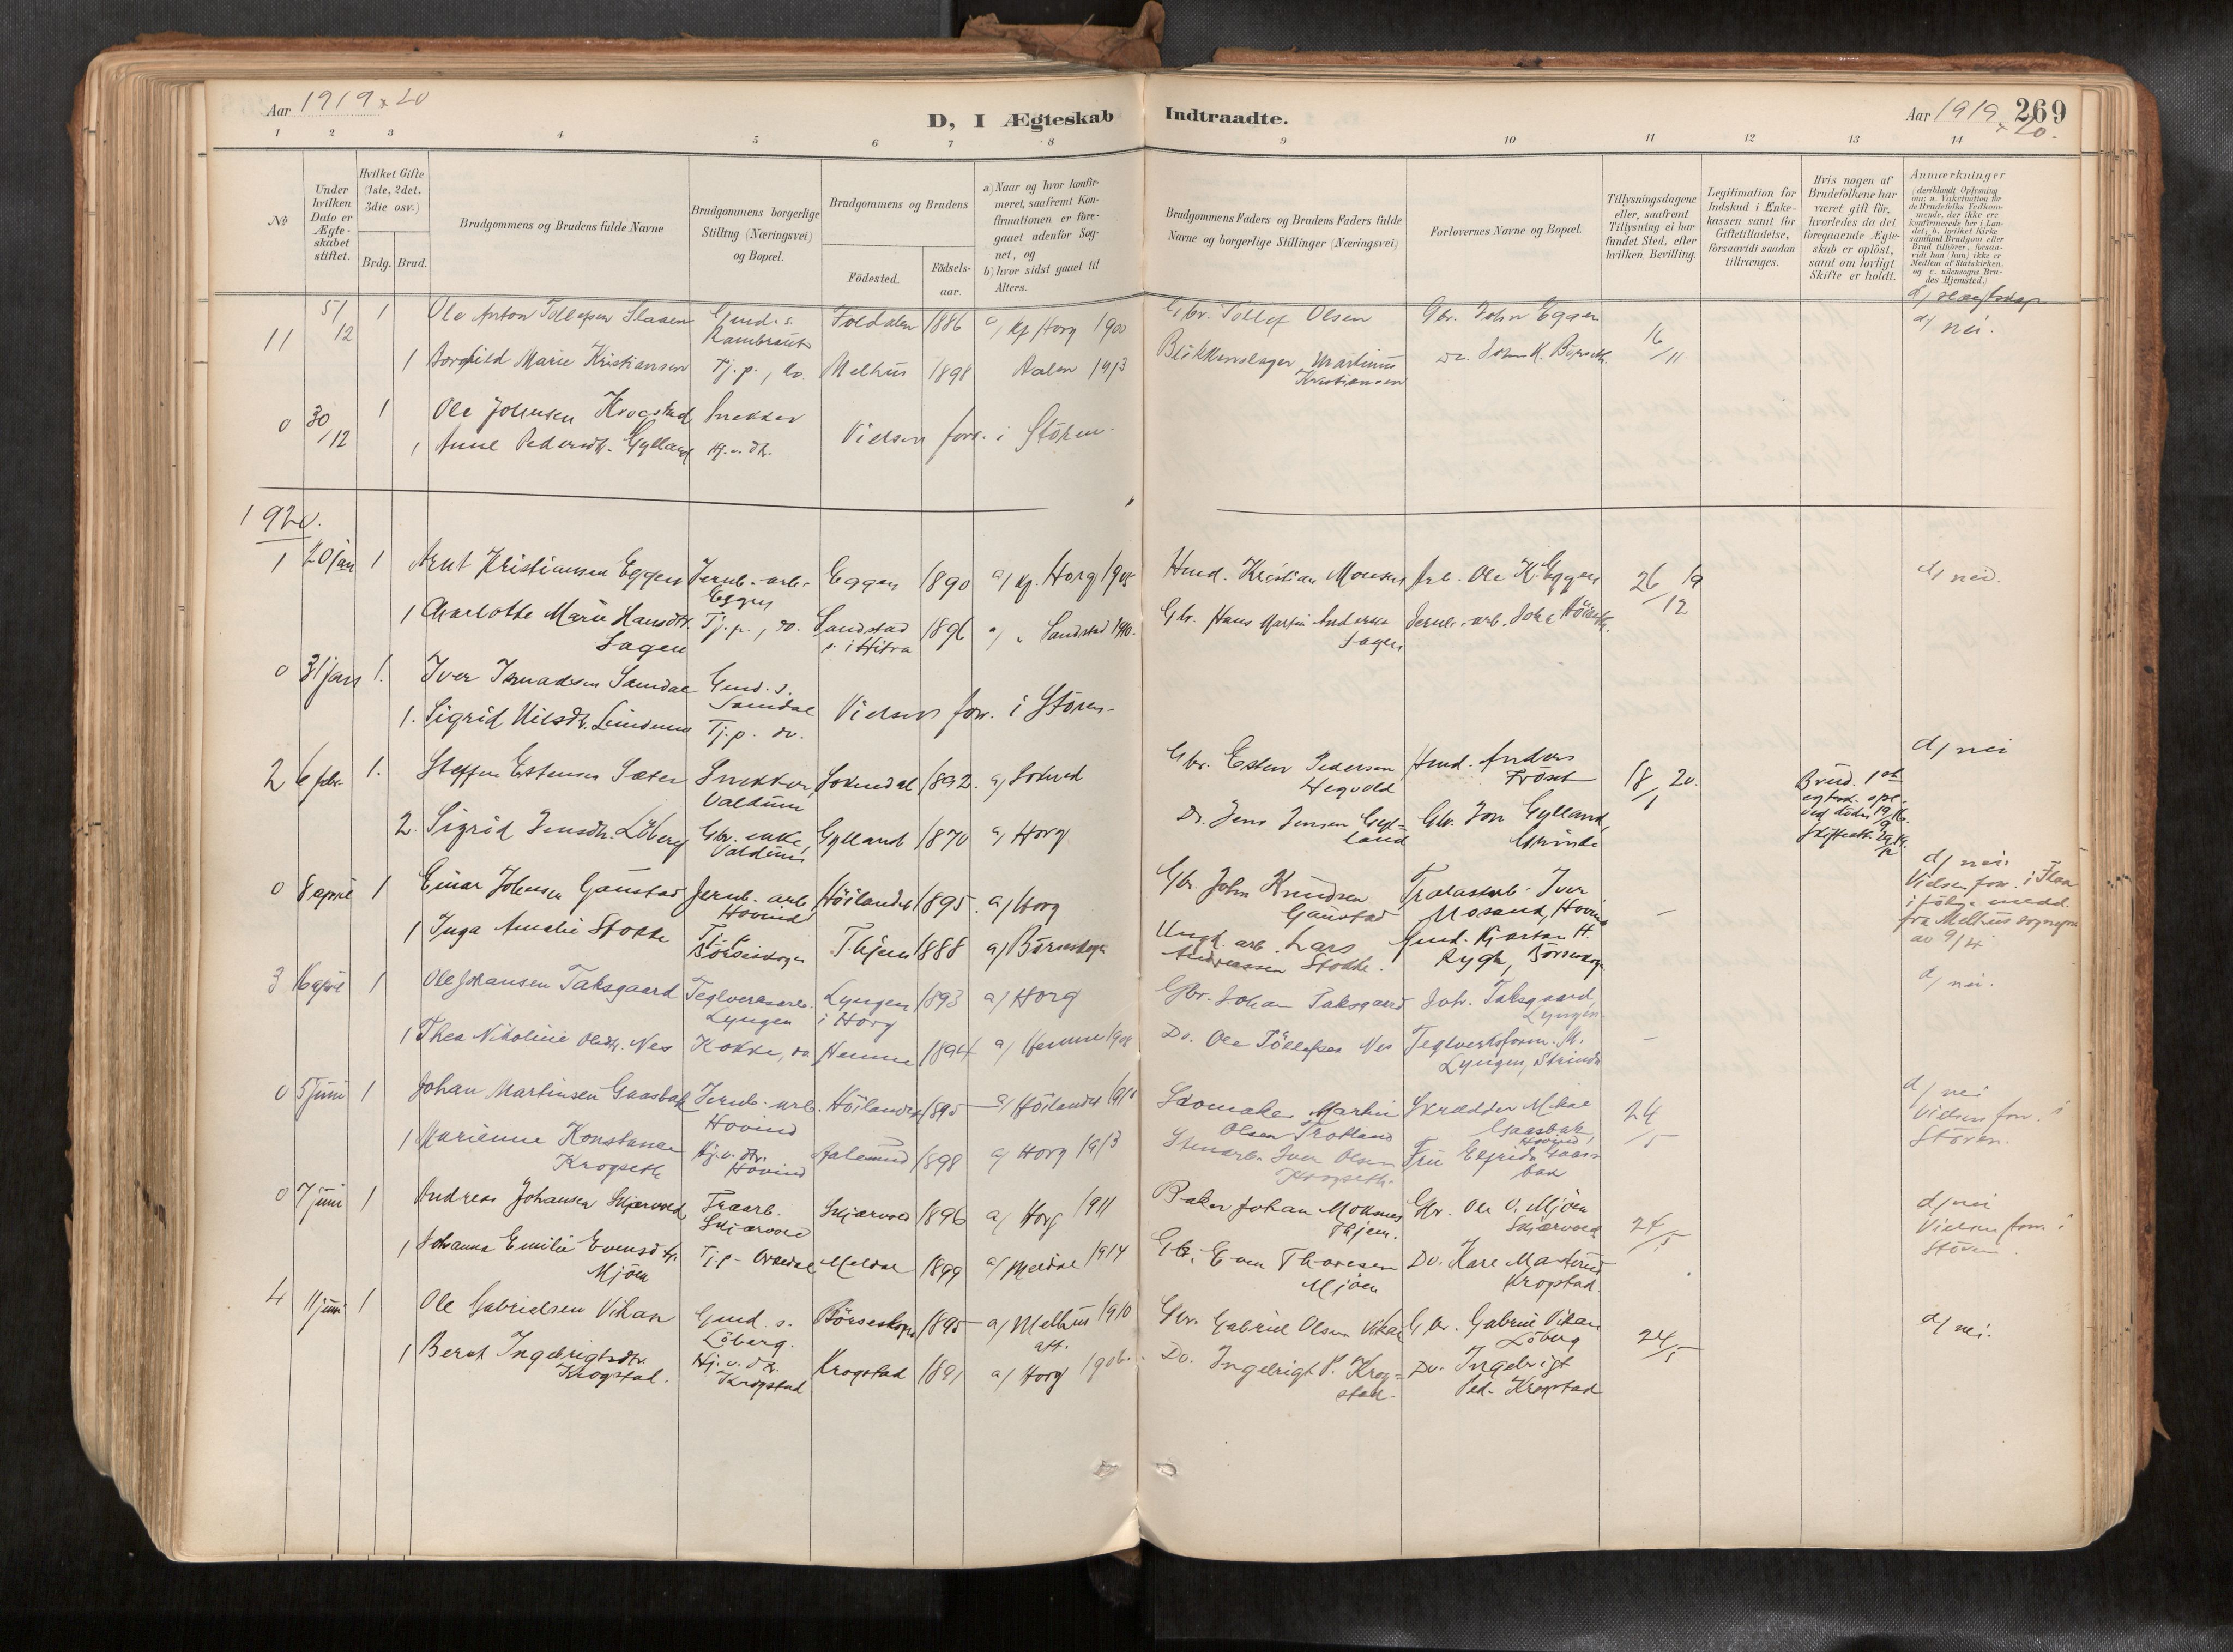 Aar 1919 & 20
D, I Ægteskab Indtraadte.
Aar 1919 & 20. 269
1 2 3 4 5 6 7 8 9 10 11 12 13 14
№
Under hvilken Dato er Ægteskabet stiftet.
Hvilket Gifte (1ste, 2det, 3die osv.)
Brdg. Brud.
Brudgommens og Brudens fulde Navne
Brudgommens borgerlige Stilling (Næringsvei) og Bopæl.
Brudgommens og Brudens
Födested.
Födsels-aar.
a) Naar og hvor konfirmeret, saafremt Konfirmationen er foregaaet udenfor Sognet, og
b) hvor sidst gaaet til Alters.
Brudgommens Faders og Brudens Faders fulde Navne og borgerlige Stillinger (Næringsvei)
Forlovernes Navne og Bopæl.
Tillysningsdagene eller, saafremt Tillysning ei har fundet Sted, efter hvilken Bevilling.
Legitimation for Indskud i Enkekassen samt for Giftetilladelse, forsaavidt saadan tiltrænges.
Hvis nogen af Brudefolkene har været gift för, hvorledes da det foregaaende Ægteskab er oplöst, samt om lovligt Skifte er holdt.
Anmærkninger (deriblandt Oplysning om: a. Vakcination for de Brudefolks Vedkommende, der ikke ere konfirmerede her i Landet; b. hvilket Kirkesamfund Brudgom eller Brud tilhörer, forsaavidt han (hun) ikke er Medlem af Statskirken, og c. udensogns Brudes Hjemsted.)
d) slægtskap
11 5/12 1 Ole Anton Tollefsen Slaaen Gmd. s. Folddalen 1886 a) Horg 1900 Gbr. Tollef Olsen Gbr. John Eggen 16/11 d) nei.
1 Borghild Marie Kristiansen Tj.p., do. Melhus 1898 Aalen 1913 Blikkenslager Martinus
Kristiansen
0 30/12 1 Ole Johnsen Krogstad Snekker
1 Anne Pedersdtr. Gylland Hj. v. dtr. Vielsen forr. i Stören.
1920.
1 20 jan 1 Arnt Kristiansen Eggen Jernb.-arb. Eggen 1890 a) Horg 1905 Hmd. Kristian Monsen Arb. Ole K. Eggen 26/12 19 d) nei.
Eggen
1 Charlotte Marie Hansdtr. Tj.p., do. Sandstad 1896 a) Sandstad 1910. Gbr. Hans Martin
Sagen s. i Hitra Sagen
0 31 jan 1. Iver Samdal Gmd. s.
Samdal
1. Sigrid Nilsdtr. Tj.p. do. Vielsen forr. i Stören.
2 6 febr. 1. Steffen Estensen Sæter Snekker, Soknedal 1892. a) Gbr. Esten Pedersen Hmd. Anders 18/1 20. d) nei
Valdum Hegvold Fröset
2. Sigrid Jensdtr. Löberg Gbr. enke, Gylland 1870 a) Horg Do. Jens Jensen Gyl- Gbr. Jon Gylland,
Valdum land Grinde
0 8 april 1 Einar Johnsen Gaustad Jernb. arb. Höilandet 1895. a) Horg Gbr. John Knudsen Iver – d) nei.
Hovind Gaustad Mosand, Hovind Vielsen forr. i Flaa
1 Inga Amalie Stokke Tj.p. Thjem 1888 a) Börseskogn Lars Gmd. i fölge medd.
Börseskogn Andreassen Stokke. Rygh, Börseskogn fra Melhus sognepr.
av 9/4
3 16 april 1 Ole Johansen Taksgaard Teglverksarb. Lyngen 1893 a) Horg Gbr. Johan Taksgaard Joh. Taksgaard, d) nei.
Lyngen i Horg Lyngen
1 Thea Nikoline Olsdtr. Nes Kokke, do Hemne 1894 a) Hemne 1908 Do. Ole Töllefsen Nes Teglverksform. M. –
Lyngen, Strinda
0 5 juni 1 Johan Martinsen Gaasbak Jernb.-arb. Höilandet 1895 a) Höilandet 1910 Skomaker Martin Skrædder Mikal 24/5 d) nei
Hovind Olsen Trotland Gaasbak, Vielsen forr. i
Hovind, Stören.
1 Marienne Konstanse Hj. v. dtr. Aalesund 1898 a) Horg 1913 Stenarb. Iver Olsen Fru Elfrida Gaas-
Krogseth Hovind Krogseth. bak
0 7 juni 1 Andreas Johansen Skjærvold Traarb. Skjærvold 1896 a) Horg 1911 Baker Johan Moksnes Gbr. Ole O. Mjöen 24/5 d) nei
Skjærvold Thjem. Skjærvold Vielsen forr. i
1 Johanna Emilie Evensdtr. Tj.p. Meldal 1899 a) Meldal 1914 Gbr. Even Thoresen Do. Stören.
Mjöen Mjöen Krogstad.
4 11 juni 1 Ole Gabrielsen Vikan Gmd. s. Börseskogn 1895 a) Melhus 1910 Gbr. Gabriel Olsen Vikan Gbr. Gabriel Vikan 24/5 d) nei.
Löberg. Löberg
1 Beret Ingebrigtsdtr. Hj. v. dtr. Krogstad 1891 a) Horg 1906. Do. Ingebrigt P. Krog- Do. Ingebrigt
Krogstad. Krogstad stad. Ped. Krogstad